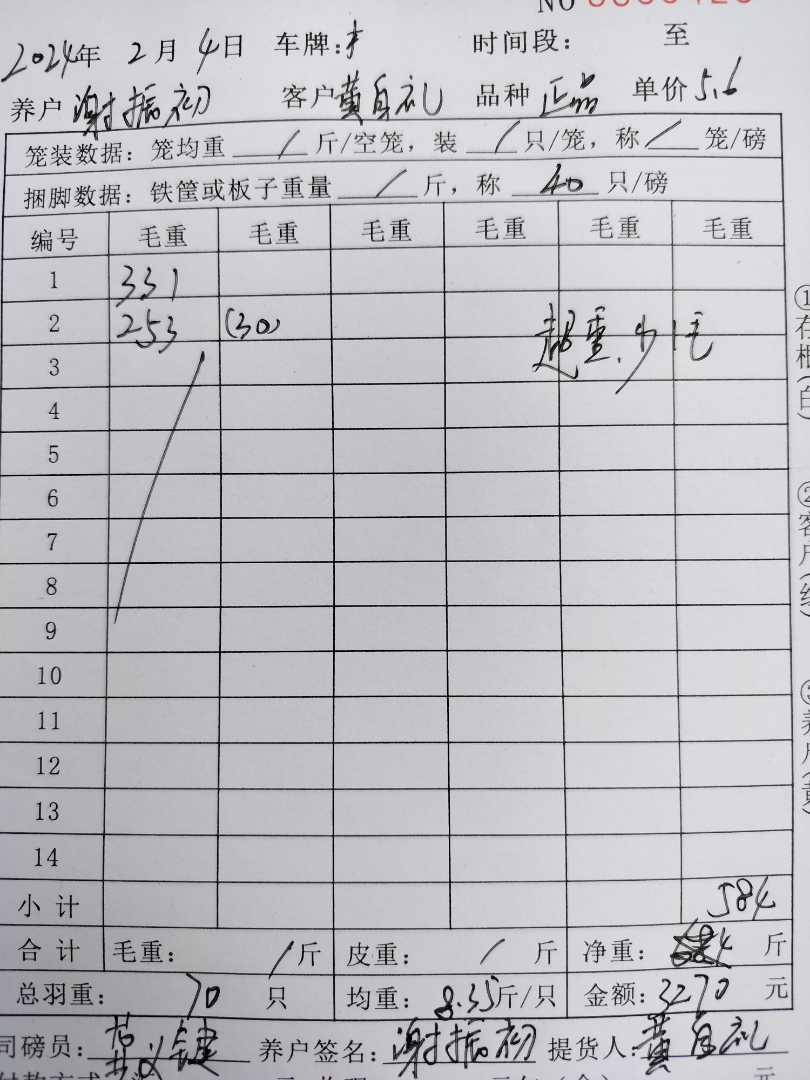 2024年 2月 4日 车牌: 时间段: 至
养户 谢振初 客户 黄自礼 品种 正品 单价 5.6
笼装数据: 笼均重 / 斤/空笼, 装 / 只/笼, 称 / 笼/磅
捆脚数据: 铁筐或板子重量 / 斤, 称 40 只/磅
编号 毛重 毛重 毛重 毛重 毛重 毛重
1 331
2 253 (30) 超重.少1毛
3
4
5
6
7
8
9
10
11
12
13
14
小计 584
合计 毛重: / 斤 皮重: / 斤 净重: 斤
总羽重: 70 只 均重: 8.35斤/只 金额: 3270 元
司磅员: 养户签名: 谢振初 提货人: 黄自礼
①存根(白)